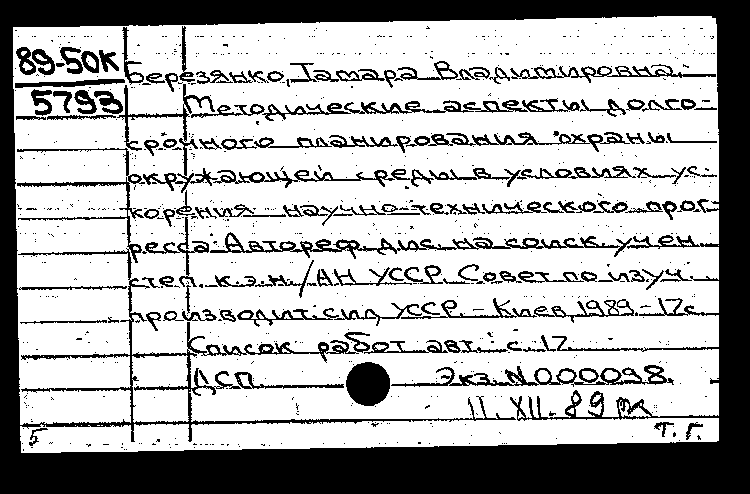 89-50К
5793
Березянко, Тамара Владимировна.
Методические аспекты долго-
срочного планирования охраны
окружающей среды в условиях ус-
корения научно-технического прог-
ресса: Автореф. дис. на соиск. учен.
степ. к.э.н. / АН УССР. Совет по изуч.
производит. сил УССР. - Киев, 1989. - 17с.
Список работ авт.: с. 17.
ДСП. Экз. N 000098.
11. XII. 89
5 т. г.